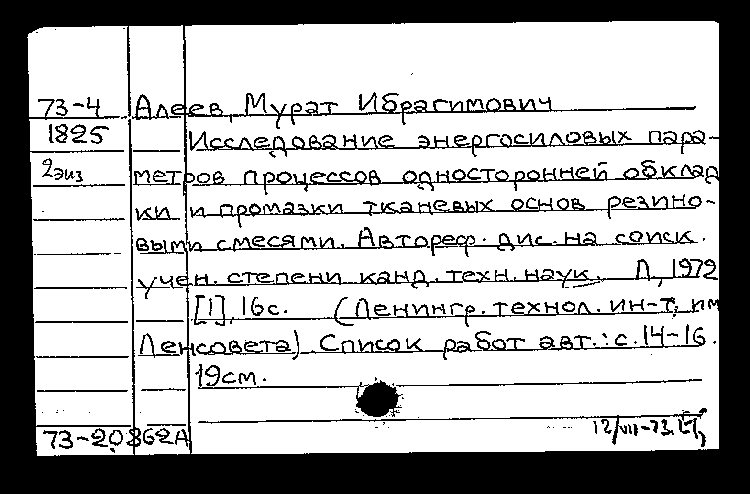 73-4 Алеев, Мурат Ибрагимович
1825 Исследование энергосиловых пара-
2экз метров процессов односторонней обклад
ки и промазки тканевых основ резино-
выми смесями. Автореф. дис. на соиск.
учен. степени канд. техн. наук. Л, 1972
[1], 16с. (Ленингр. технол. ин-т, им
Ленсовета). Список работ авт.: с. 14-16.
19см.
73-20862А 12/VII-73.